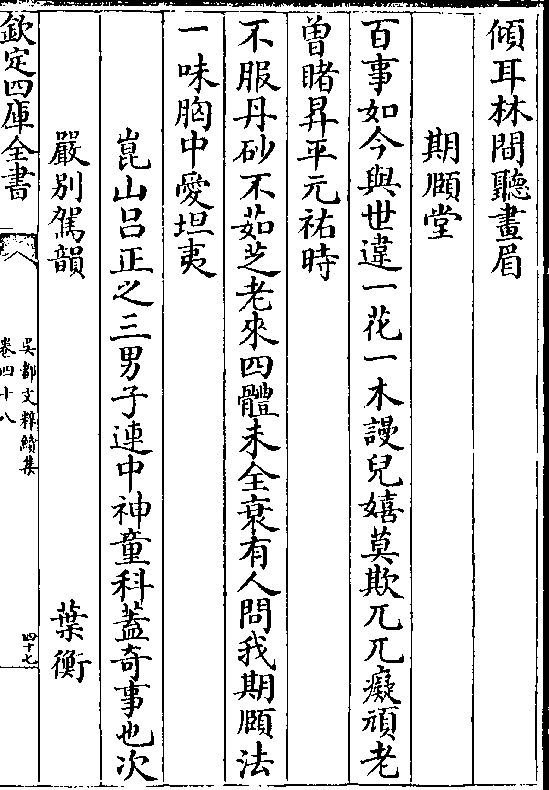 傾耳林間聽畫眉
期頤堂
百事如今與世違一花一木謾兒嬉莫欺兀兀癡頑老
曽睹昇平元祐時
不服丹砂不茹芝老來四體未全衰有人問我期頤法
一味胸中愛坦夷
崑山呂正之三男子連中神童科葢奇事也次
嚴别駕韻
葉衡
欽定四庫全書
吳都文粹續集
卷四十八
四十七